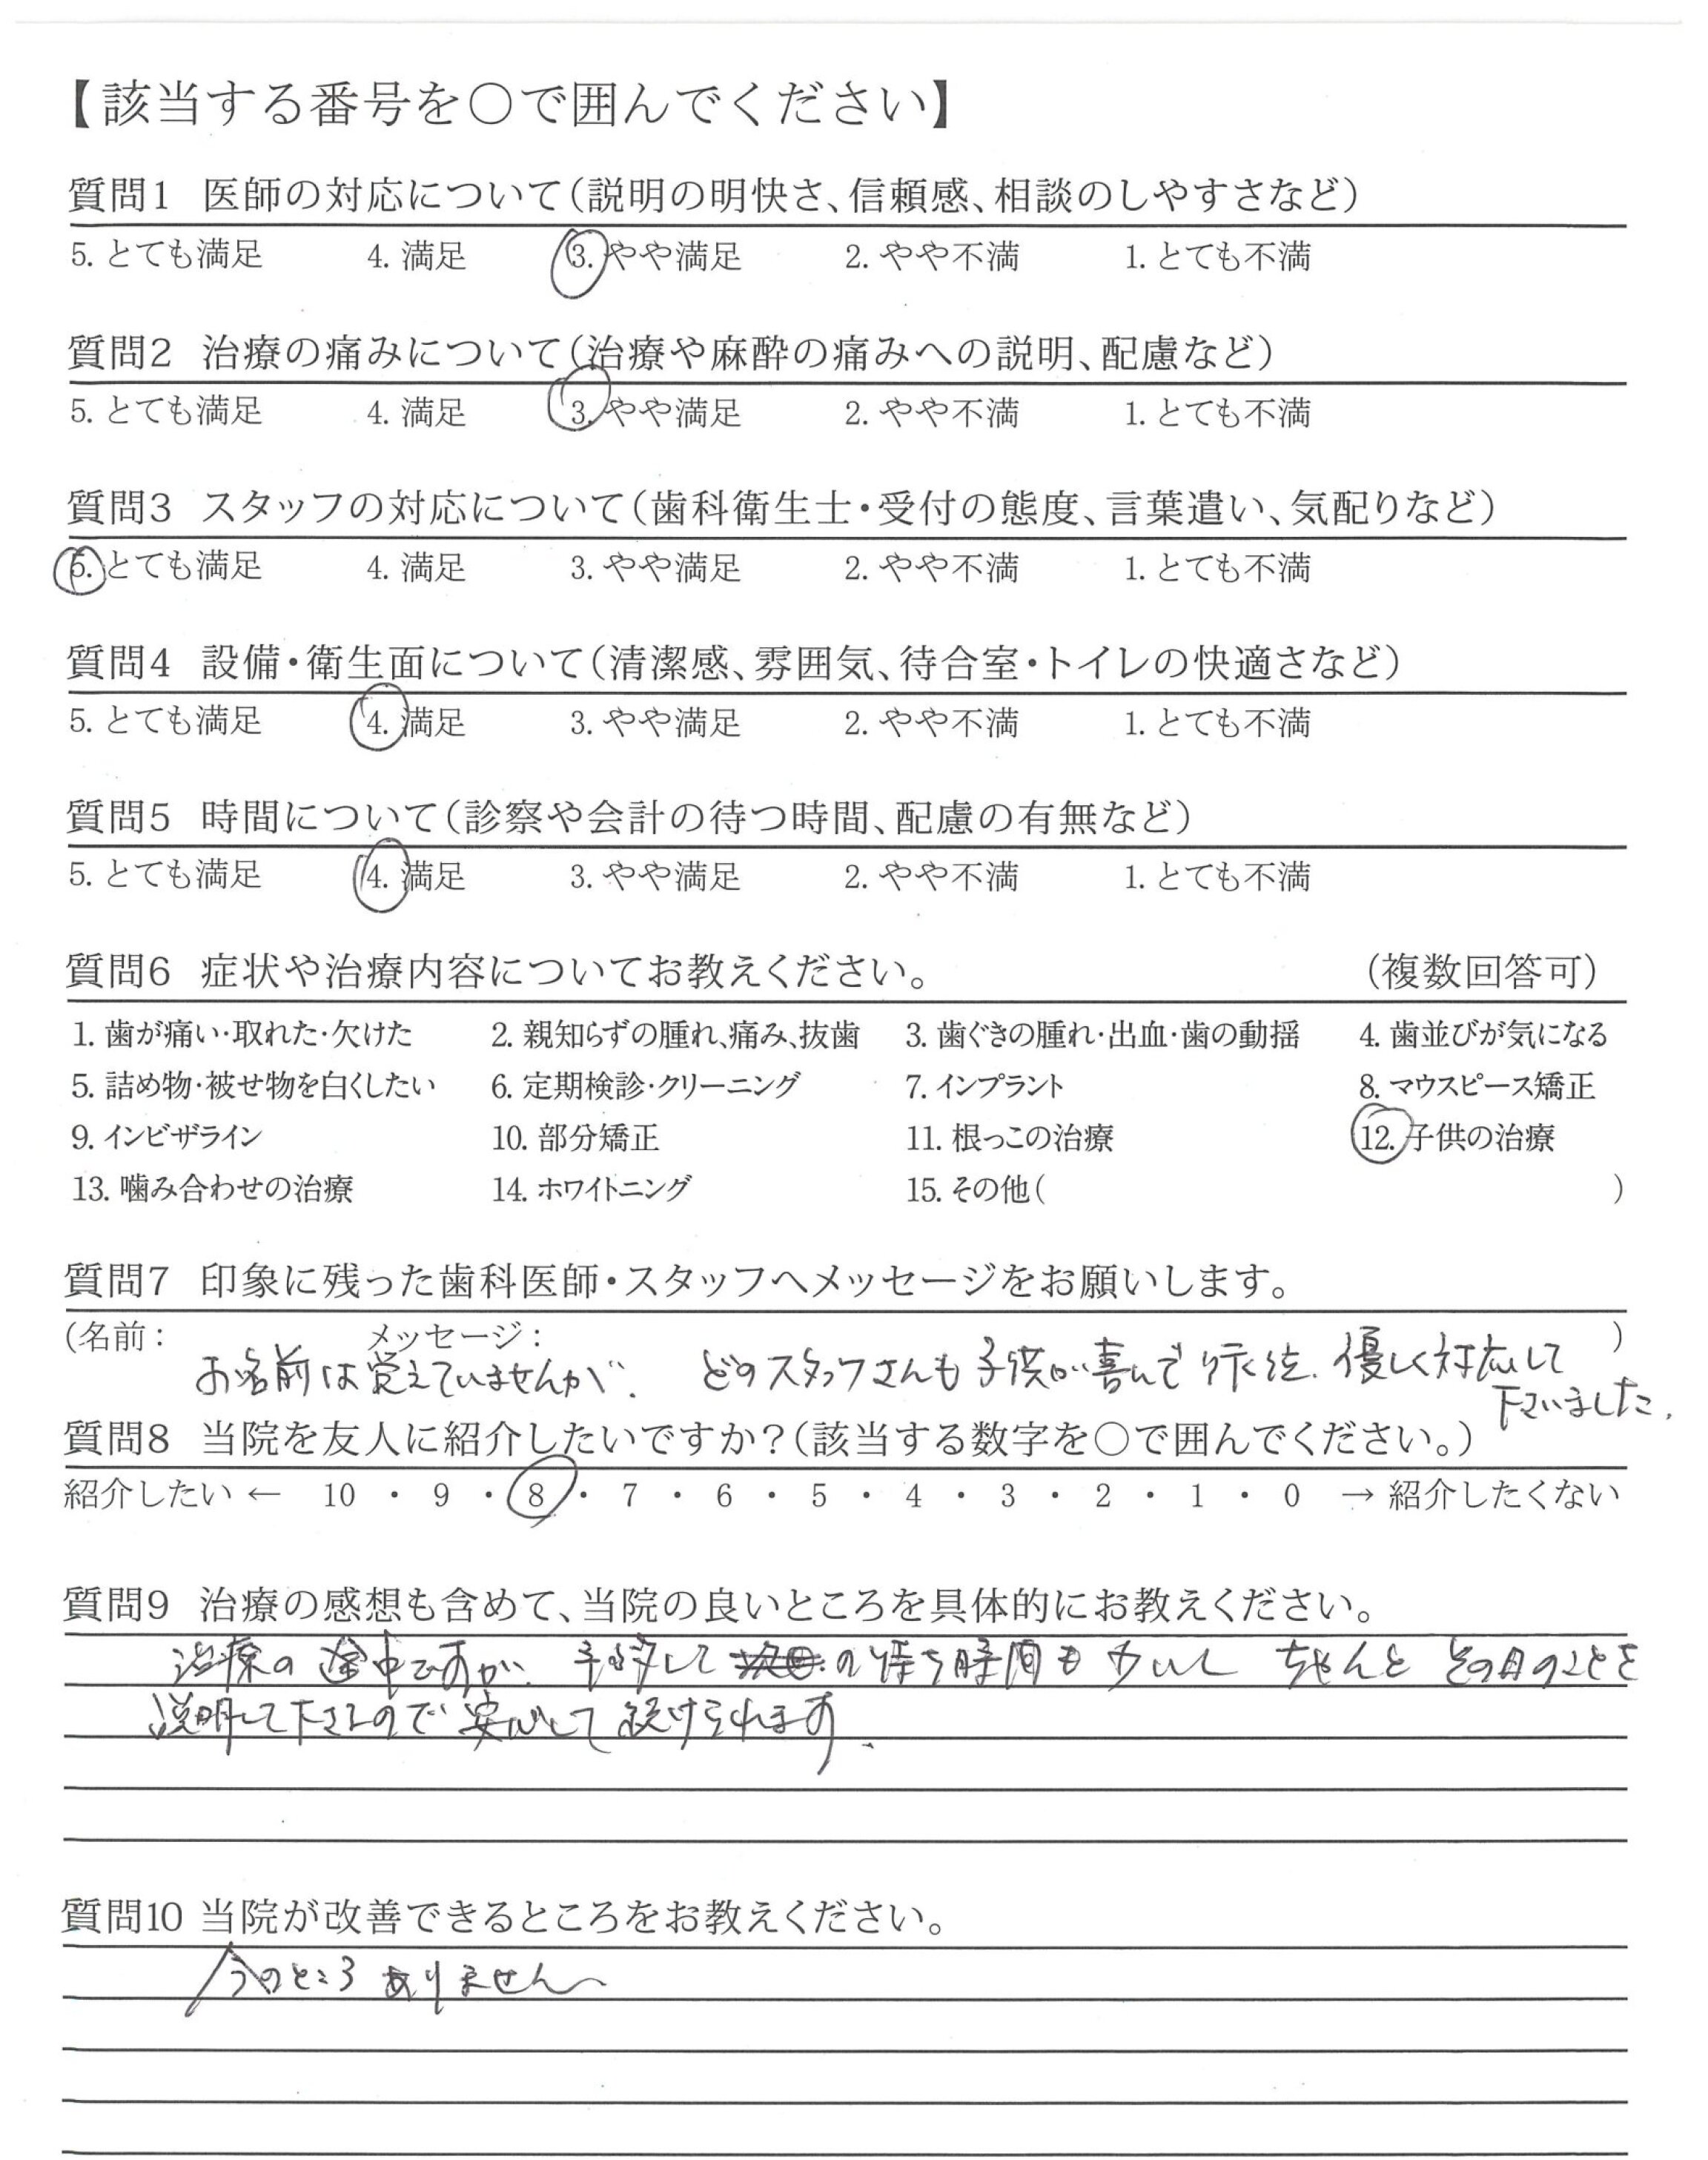 【該当する番号を○で囲んでください】
質問1 医師の対応について(説明の明快さ、信頼感、相談のしやすさなど)
5. とても満足 4. 満足 3. やや満足 2. やや不満 1. とても不満
質問2 治療の痛みについて(治療や麻酔の痛みへの説明、配慮など)
5. とても満足 4. 満足 3. やや満足 2. やや不満 1. とても不満
質問3 スタッフの対応について(歯科衛生士・受付の態度、言葉遣い、気配りなど)
5. とても満足 4. 満足 3. やや満足 2. やや不満 1. とても不満
質問4 設備・衛生面について(清潔感、雰囲気、待合室・トイレの快適さなど)
5. とても満足 4. 満足 3. やや満足 2. やや不満 1. とても不満
質問5 時間について(診察や会計の待つ時間、配慮の有無など)
5. とても満足 4. 満足 3. やや満足 2. やや不満 1. とても不満
質問6 症状や治療内容についてお教えください。 (複数回答可)
1. 歯が痛い・取れた・欠けた 2. 親知らずの腫れ、痛み、抜歯 3. 歯ぐきの腫れ・出血・歯の動揺 4. 歯並びが気になる
5. 詰め物・被せ物を白くしたい 6. 定期検診・クリーニング 7. インプラント 8. マウスピース矯正
9. インビザライン 10. 部分矯正 11. 根っこの治療 12. 子供の治療
13. 噛み合わせの治療 14. ホワイトニング 15. その他( )
質問7 印象に残った歯科医師・スタッフへメッセージをお願いします。
(名前: メッセージ: )
お名前は覚えていませんが、 どのスタッフさんも子供が喜んで 優しく対応して
下さいました。
質問8 当院を友人に紹介したいですか?(該当する数字を○で囲んでください。)
紹介したい ← 10 ・ 9 ・ 8 ・ 7 ・ 6 ・ 5 ・ 4 ・ 3 ・ 2 ・ 1 ・ 0 → 紹介したくない
質問9 治療の感想も含めて、当院の良いところを具体的にお教えください。
治療の途中ですが、予約して の待ち時間も少いし ちゃんと その日のことを
説明して下さるので安心して続けられます。
質問10 当院が改善できるところをお教えください。
今のところ ありません